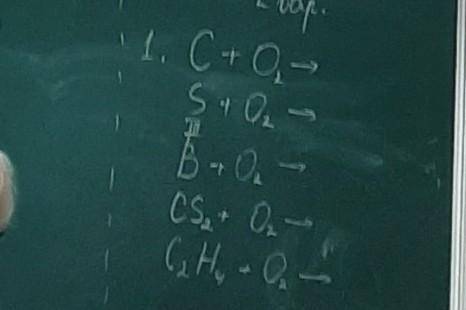 2 вар.
1. C + O₂ →
S + O₂ →
III
B + O₂ →
CS₂ + O₂ →
C₂H₄ + O₂ →